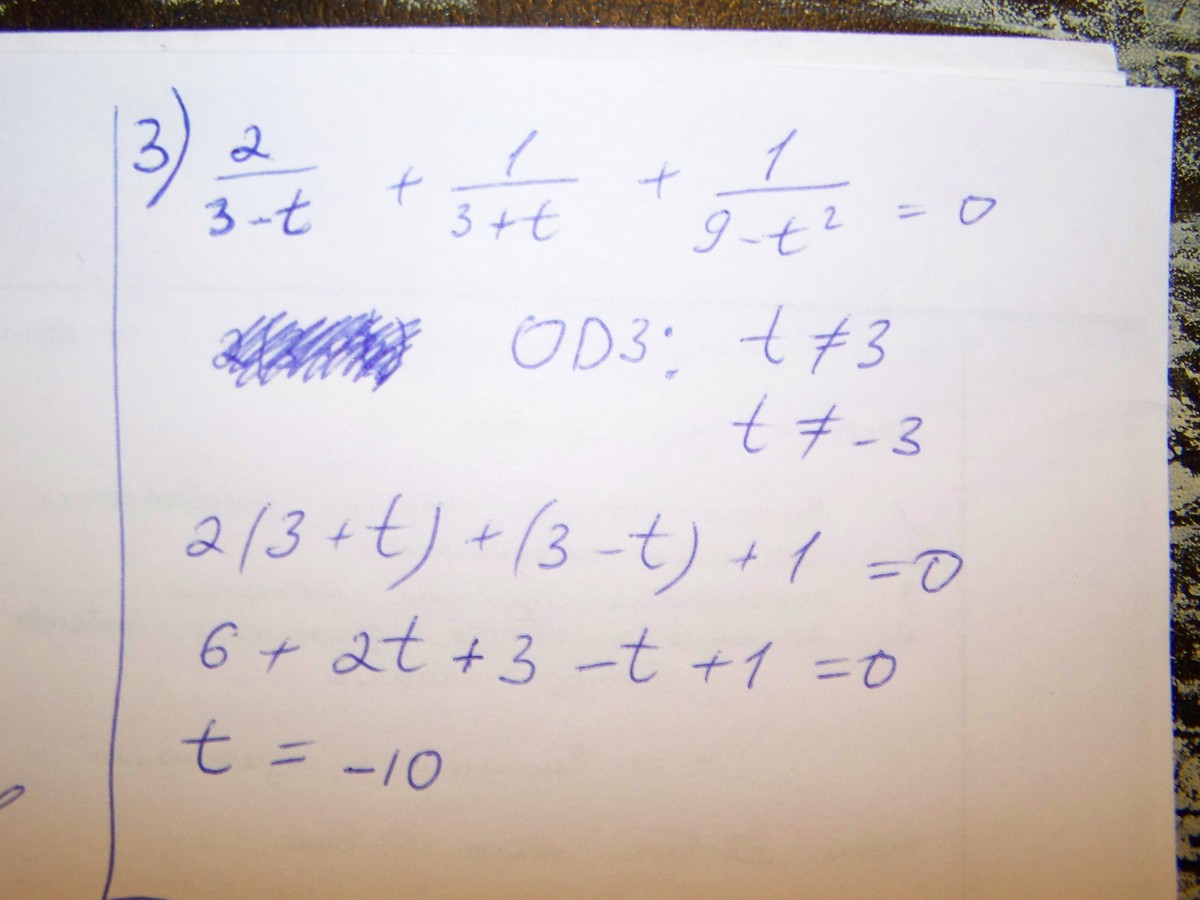 3) 2/(3-t) + 1/(3+t) + 1/(9-t²) = 0
ОДЗ: t ≠ 3
t ≠ -3
2(3+t) + (3-t) + 1 = 0
6 + 2t + 3 - t + 1 = 0
t = -10